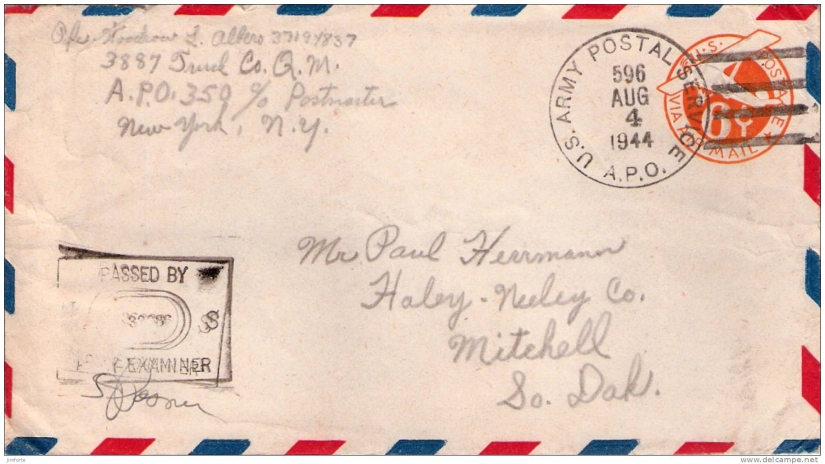 Pfc. Woodrow L. Albers 37194837
3887 Truck Co. Q.M.
A.P.O. 350 c/o Postmaster
New York, N.Y.
U.S. ARMY POSTAL SERVICE
596
AUG
4
1944
A.P.O.
U.S. POSTAGE
6¢
VIA AIR MAIL
Mr. Paul Herrmann
Haley-Neeley Co.
Mitchell
So. Dak.
PASSED BY
EXAMINER
jmforte
www.delcampe.net